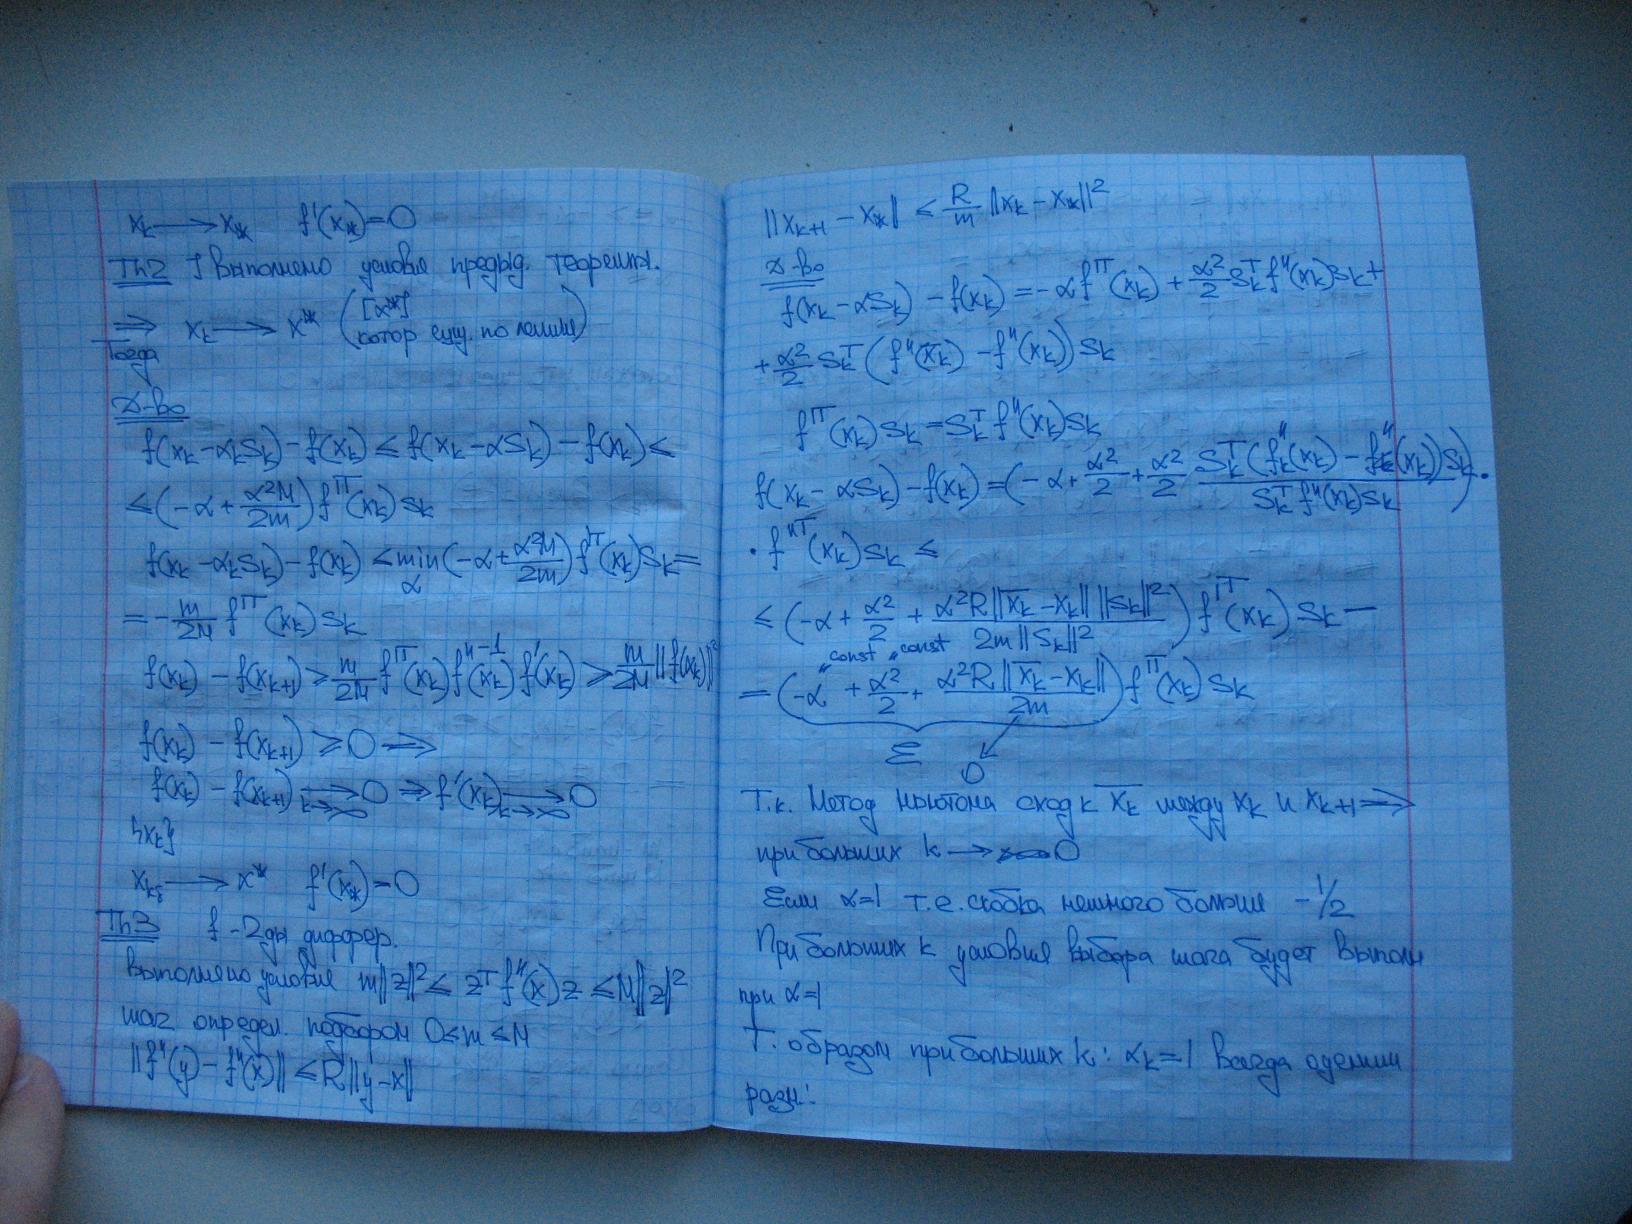 x_k ⟶ x_* f'(x_*)=0
Th2 ] Выполнено условия предыд. теоремы.
⟹ x_k ⟶ x^* ([x^*]
котор сущ. по лемме)
Тогда
Д-во
f(x_k-α_kS_k)-f(x_k) ≤ f(x_k-αS_k)-f(x_k) ≤
≤(-α+α²M/2m)f'ᵀ(x_k)s_k
f(x_k-α_kS_k)-f(x_k) ≤ min_α(-α+α²M/2m)f'ᵀ(x_k)S_k=
=-m/2M f'ᵀ(x_k)S_k
f(x_k)-f(x_{k+1}) ≥ m/2M f'ᵀ(x_k)f''⁻¹(x_k)f'(x_k) ≥ m/2M ||f(x_k)||²
f(x_k)-f(x_{k+1}) ≥ 0 ⟹
f(x_k)-f(x_{k+1}) ⟶_{k→∞} 0 ⇒ f'(x_k) ⟶_{k→∞} 0
{x_k}
⟶ x^* f'(x_*)=0
Th3 f -2ды диффер.
выполнено условие m||z||² ≤ zᵀf''(x)z ≤ M||z||²
шаг определ. подбором 0≤m≤M
||f''(y)-f''(x)|| ≤ R||y-x||
||x_{k+1} - x_*|| ≤ R/m ||x_k - x_*||²
Д-во
f(x_k-αS_k) - f(x_k) = -αf'ᵀ(x_k) + α²/2 S_kᵀf''(x_k)S_k+
+α²/2 S_kᵀ(f''(x̄_k) - f''(x_k))S_k
f'ᵀ(x_k)S_k=S_kᵀf''(x_k)S_k
f(x_k-αS_k)-f(x_k)=(-α+α²/2+α²/2 S_kᵀ(f''_k(x_k)-f''(x_k))S_k / S_kᵀf''(x_k)S_k)·
·f''ᵀ(x_k)S_k ≤
≤(-α+α²/2+α²R||x̄_k-x_k|| ||S_k||²/2m||S_k||²)f'ᵀ(x_k)S_k—
"const "const
=(-α+α²/2+α²R||x̄_k-x_k||/2m)f'ᵀ(x_k)S_k
ε
0
Т.к. Метод Ньютона сход к x̄_k между x_k и x_{k+1} ⟹
при больших k ⟶ 0
Если α=1 т.е. скобка немного больше -1/2
При больших k условия выбора шага будет выполн
при α=1
Т. образом при больших k: α_k=1 всегда